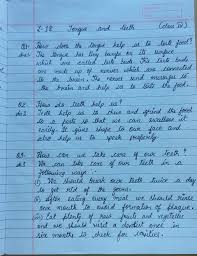 L-18 Tongue and teeth (class IV)
Q1- How does the tongue help us to taste food?
Ans The tongue has tiny bumps on its surface
which are called taste buds. The taste buds
are made up of nerves which are connected
to the brain. The nerves send messages to
the brain and help us to taste the food.
Q2. How do teeth help us?
Ans Teeth help us to chew and grind the food
to a paste so that we can swallow it
easily. It gives shape to our face and
also help us to speak properly.
Q3- How can we take care of our teeth?
Ans We can take care of our teeth in the
following ways:
(i) We should brush our teeth twice a day
to get rid of the germs.
(ii) After eating every meal we should rinse
our mouth to avoid formation of plaque.
(iii) Eat plenty of raw fruits and vegetables
and we should visit a dentist once in
six months to check for cavities.